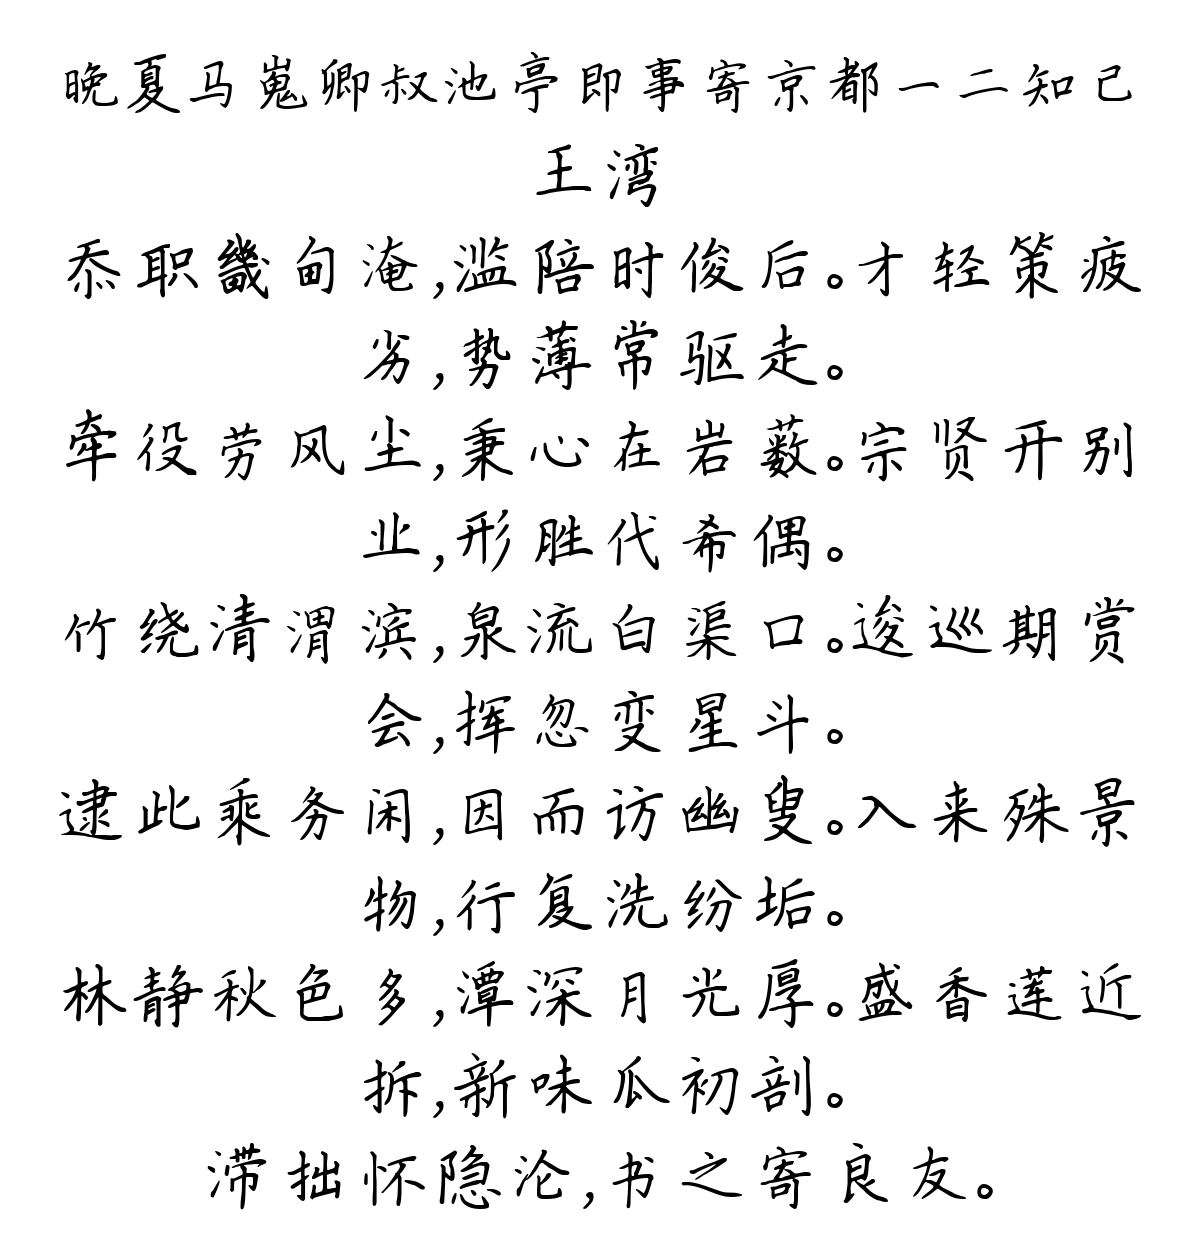 晚夏马嵬卿叔池亭即事寄京都一二知己
王湾
忝职畿甸淹,滥陪时俊后。才轻策疲
劣,势薄常驱走。
牵役劳风尘,秉心在岩薮。宗贤开别
业,形胜代希偶。
竹绕清渭滨,泉流白渠口。逡巡期赏
会,挥忽变星斗。
逮此乘务闲,因而访幽叟。入来殊景
物,行复洗纷垢。
林静秋色多,潭深月光厚。盛香莲近
拆,新味瓜初剖。
滞拙怀隐沦,书之寄良友。